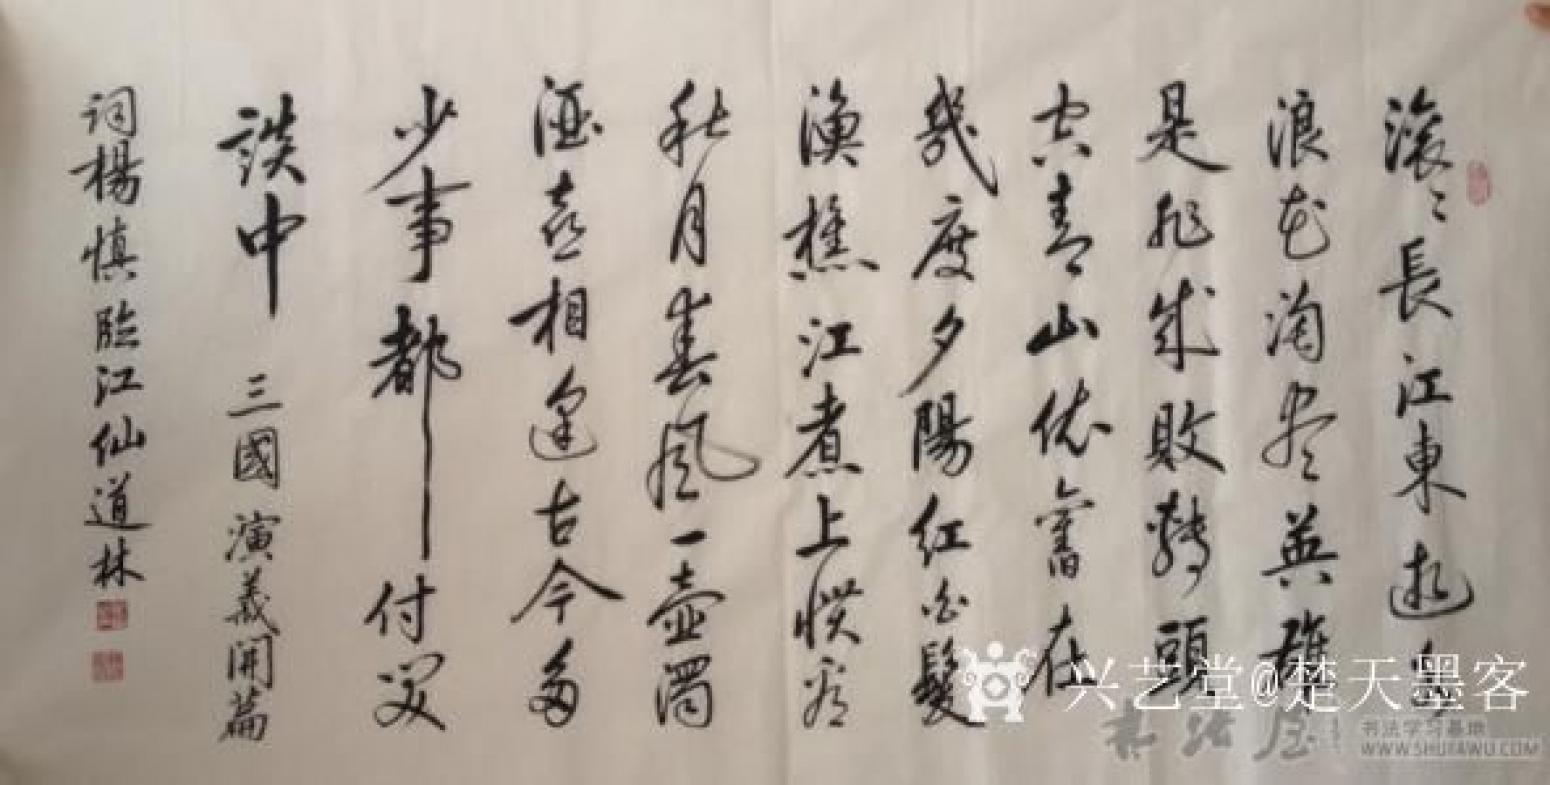 滚〻長江東逝水
浪花淘尽英雄
是非成敗轉頭
空青山依舊在
幾度夕陽紅白髮
漁樵江渚上惯看
秋月春風一壶濁
酒喜相逢古今多
少事都付笑
談中 三國演義開篇
词楊慎臨江仙道林
兴艺堂@楚天墨客
书法屋
书法学习基地
WWW.SHUFAWU.COM